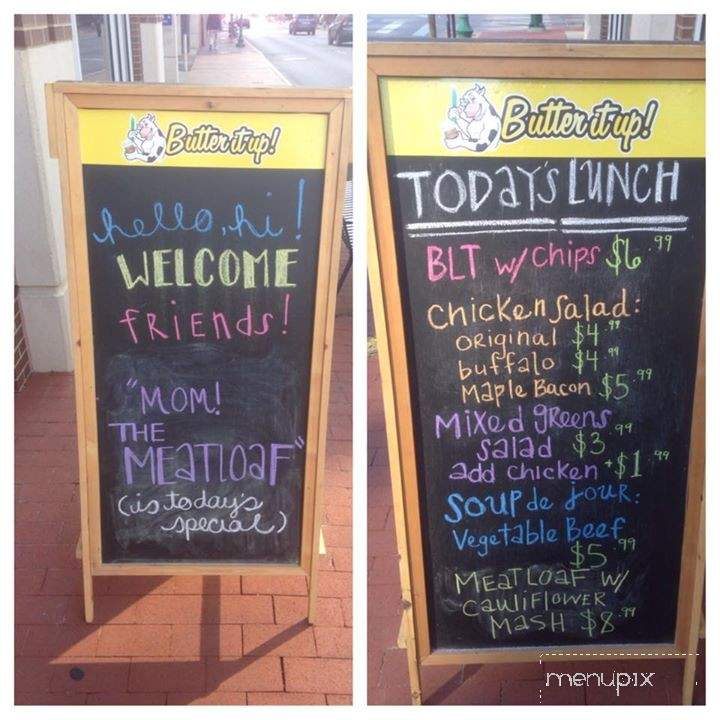 Butter it up!
hello, hi!
WELCOME
FRIENDS!
"MOM!
THE
MEATLOAF"
(is today's
special)
Butter it up!
TODAY'S LUNCH
BLT w/ chips $6.99
Chicken Salad:
ORiginal $4.99
buffalo $4.99
Maple Bacon $5.99
Mixed gReens
salad $3.99
add chicken +$1.99
SOUP de JOUR:
Vegetable Beef
$5.99
MEATLOAF W/
CAULIFLOWER
MASH $8.99
menupix